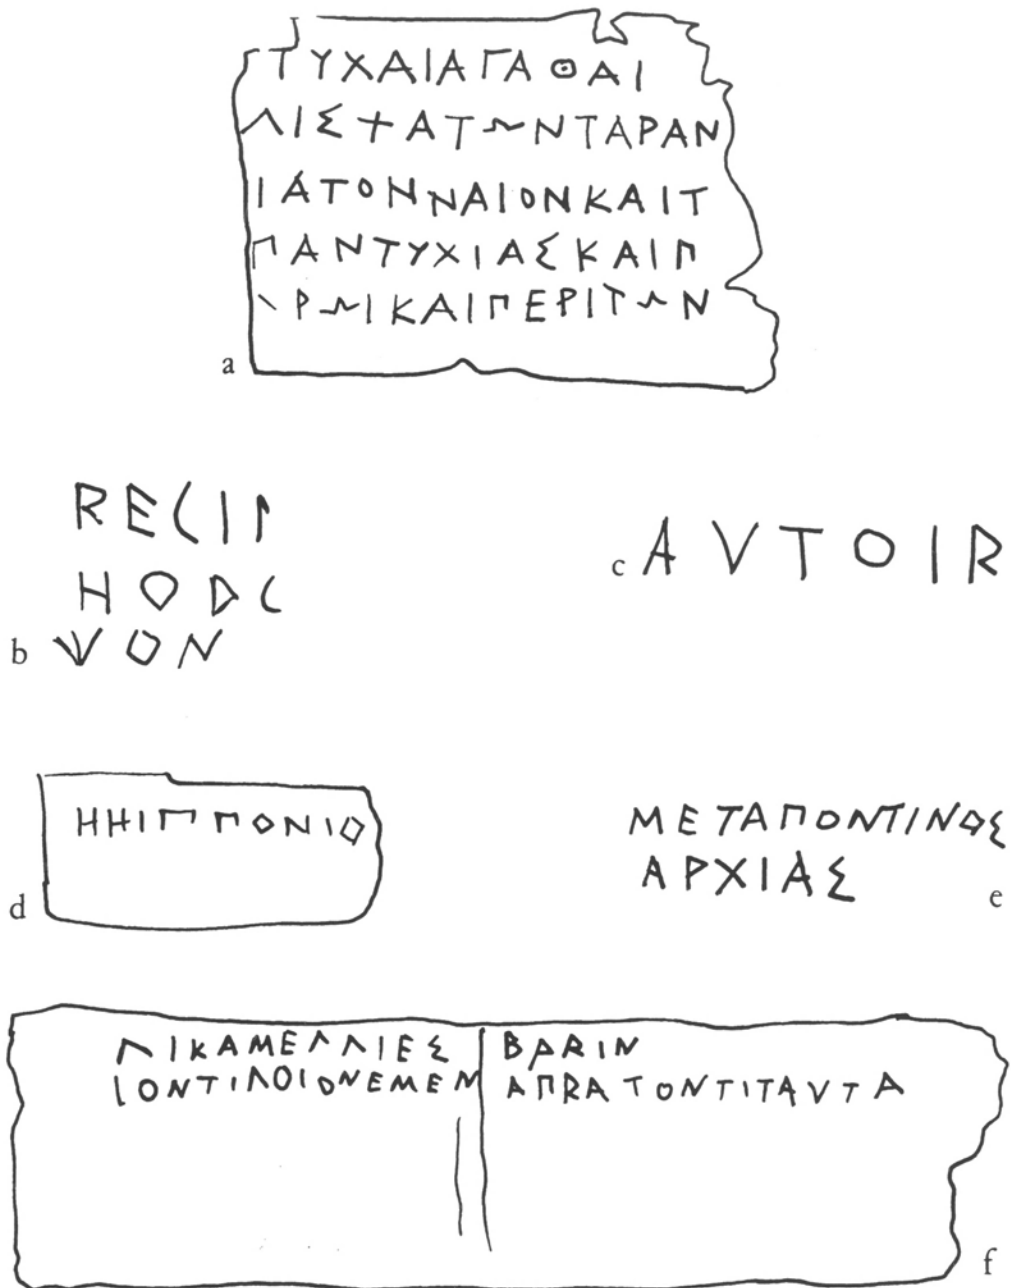 ΤΥΧΑΙΑΓΑΘΑΙ
ΛΙΣ+ΑΤΩΝΤΑΡΑΝ
ΙΑΤΟΝΝΑΙΟΝΚΑΙΤ
ΠΑΝΤΥΧΙΑΣΚΑΙΠ
ΡΩΙΚΑΙΠΕΡΙΤΩΝ
a
RECIΓ
HODC
b ΨON
c AVTOIR
ΗΗΙΠΠΟΝΙΟ
d
ΜΕΤΑΠΟΝΤΙΝΟΣ
ΑΡΧΙΑΣ
e
ΛΙΚΑΜΕΛΛΙΕΣ BARIN
ΙΟΝΤΙΛΟΙΟΝΕΜΕΝ ΑΠRΑΤΟΝΤΙΤΑVΤΑ
f